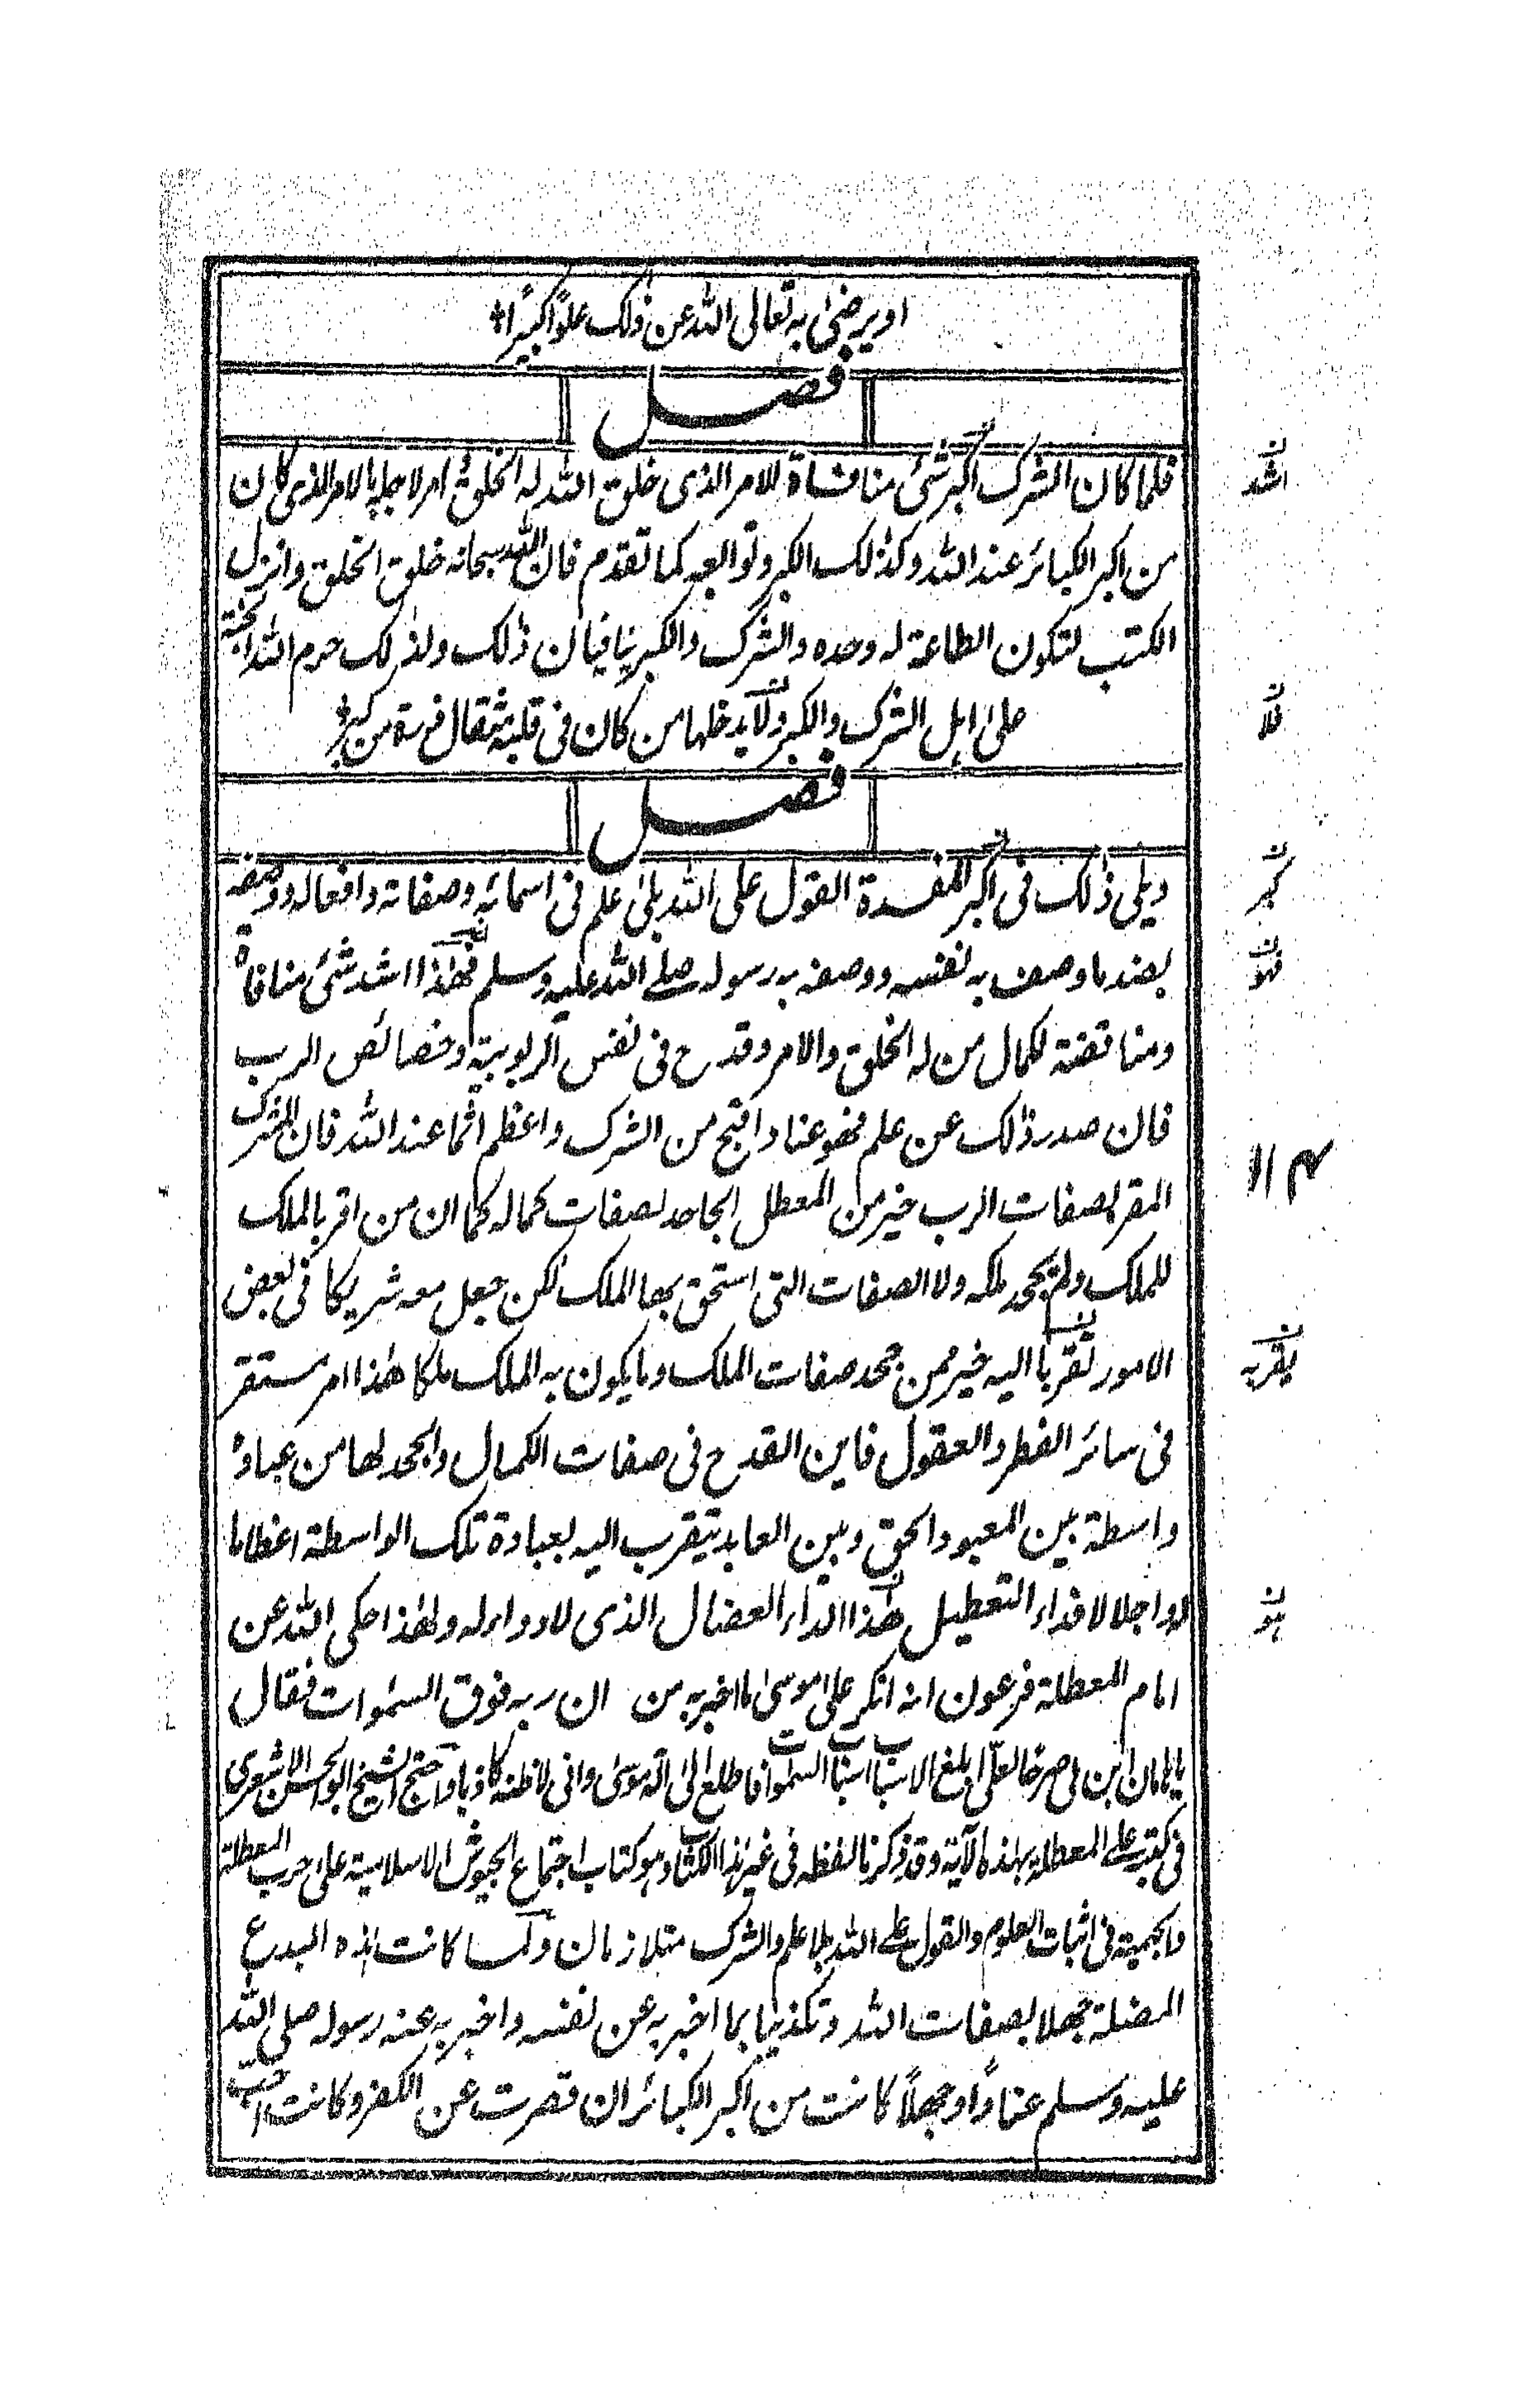 او يرضى به تعالى الله عن ذلك علوا كبيرا
فصل
فلما كان الشرك اكبر شئ منافاة للامر الذى خلق الله له الخلق و امر لاجله بالامر الذى كان
من اكبر الكبائر عند الله وكذلك الكبر وتوابعه كما تقدم فان الله سبحانه خلق الخلق وانزل
الكتب لتكون الطاعة له وحده والشرك والكبر ينافيان ذلك ولذلك حرم الله الجنة
على اهل الشرك والكبر ولا يدخلها من كان فى قلبه مثقال ذرة من كبر
فصل
ويلى ذلك فى اكبر المفسدة القول على الله بلى علم فى اسمائه وصفاته وافعاله ووصفه
بضد ما وصف به نفسه ووصفه به رسوله صلى الله عليه وسلم فهذا اشد شئ منافاة
ومناقضة لكمال من له الخلق والامر وقدح فى نفس الربوبية وخصائص الرب
فان صدر ذلك عن علم فهو عناد اقبح من الشرك واعظم اثما عند الله فان المشرك
المقر بصفات الرب خير من المعطل الجاحد لصفات كماله كما ان من اقر بالملك
للملك ولم يجحد ملكه ولا الصفات التى استحق بها الملك لكن جعل معه شريكا فى بعض
الامور تقربا اليه خير ممن جحد صفات الملك وما يكون به الملك ملكا هذا امر مستقر
فى سائر الفطر والعقول فاين القدح فى صفات الكمال والجحد لها من عبادة
واسطة بين المعبود الحق وبين العابد يتقرب اليه بعبادة تلك الواسطة اعظاما
له واجلالا فداء التعطيل هذا الداء العضال الذى لا دواء له ولهذا حكى الله عن
امام المعطلة فرعون انه انكر على موسى ما اخبر به من ان ربه فوق السموات فقال
يا هامان ابن لى صرحا لعلى ابلغ الاسباب اسباب السموات فاطلع الى اله موسى وانى لاظنه كاذبا واحتج الشيخ ابو الحسن الاشعرى
فى كتبه على المعطلة بهذه الآية وقد ذكرنا لفظه فى غير هذا الكتاب وهو كتاب اجتماع الجيوش الاسلامية على حرب المعطلة
والجهمية فى اثبات العلوم والقول على الله بلا علم والشرك متلازمان ولما كانت هذه البدع
المضلة جهلا بصفات الله وتكذيبا بما اخبر به عن نفسه واخبر به عنه رسوله صلى الله
عليه وسلم عنادا وجهلا كانت من اكبر الكبائر ان قصرت عن الكفر وكانت احب
اشد
فلا
كبر
فهو
١١٤
يقربه
هو